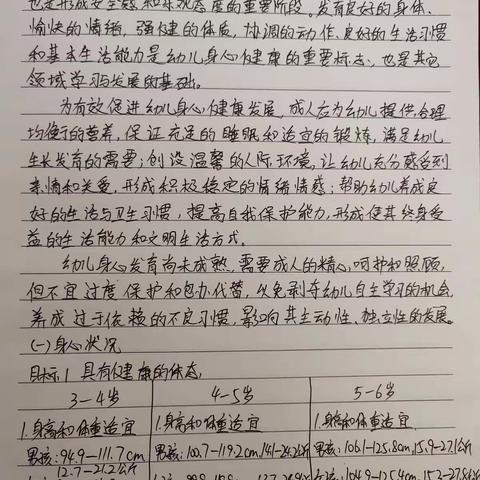 也是形成安全感和乐观态度的重要阶段。发育良好的身体、
愉快的情绪、强健的体质、协调的动作、良好的生活习惯
和基本生活能力是幼儿身心健康的重要标志、也是其它
领域学习与发展的基础。
为有效促进幼儿身心健康发展,成人应为幼儿提供合理
均衡的营养,保证充足的睡眠和适宜的锻炼,满足幼儿
生长发育的需要;创设温馨的人际环境,让幼儿充分感受到
亲情和关爱,形成积极稳定的情绪情感;帮助幼儿养成良
好的生活与卫生习惯,提高自我保护能力,形成使其终身受
益的生活能力和文明生活方式。
幼儿身心发育尚未成熟,需要成人的精心呵护和照顾,
但不宜过度保护和包办代替,以免剥夺幼儿自主学习的机会,
养成过于依赖的不良习惯,影响其主动性、独立性的发展。
(一)身心状况
目标1 具有健康的体态
3-4岁 4-5岁 5-6岁
1.身高和体重适宜 1.身高和体重适宜 1.身高和体重适宜
男孩:94.9-111.7cm 男孩:100.7-119.2cm,14.1-24.2公斤 男孩:106.1-125.8cm,15.9-27.1公斤
12.7-21.2公斤
104.9-125.4cm,15.3-27.8公斤